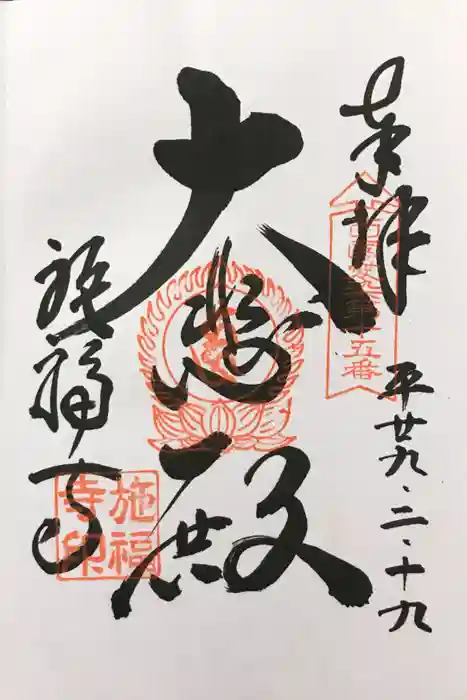 奉拝
平廿九・二・十九
十五番
大悲殿
施福寺
施福
寺印